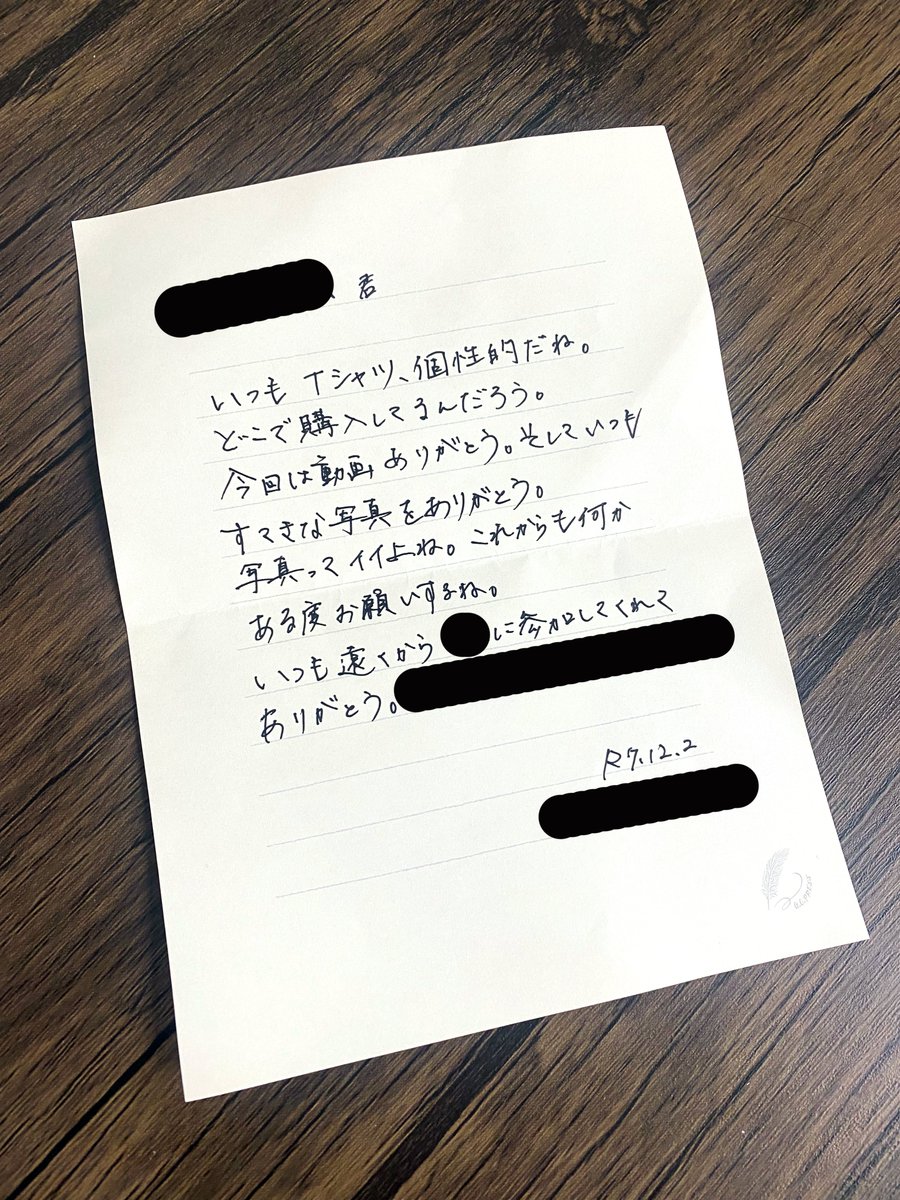 君
いつもTシャツ、個性的だね。
どこで購入してるんだろう。
今回は動画ありがとう。そしていつも
すてきな写真をありがとう。
写真ってイイよね。これからも何か
ある度お願いするね。
いつも遠くから に参加してくれて
ありがとう。
R7.12.2